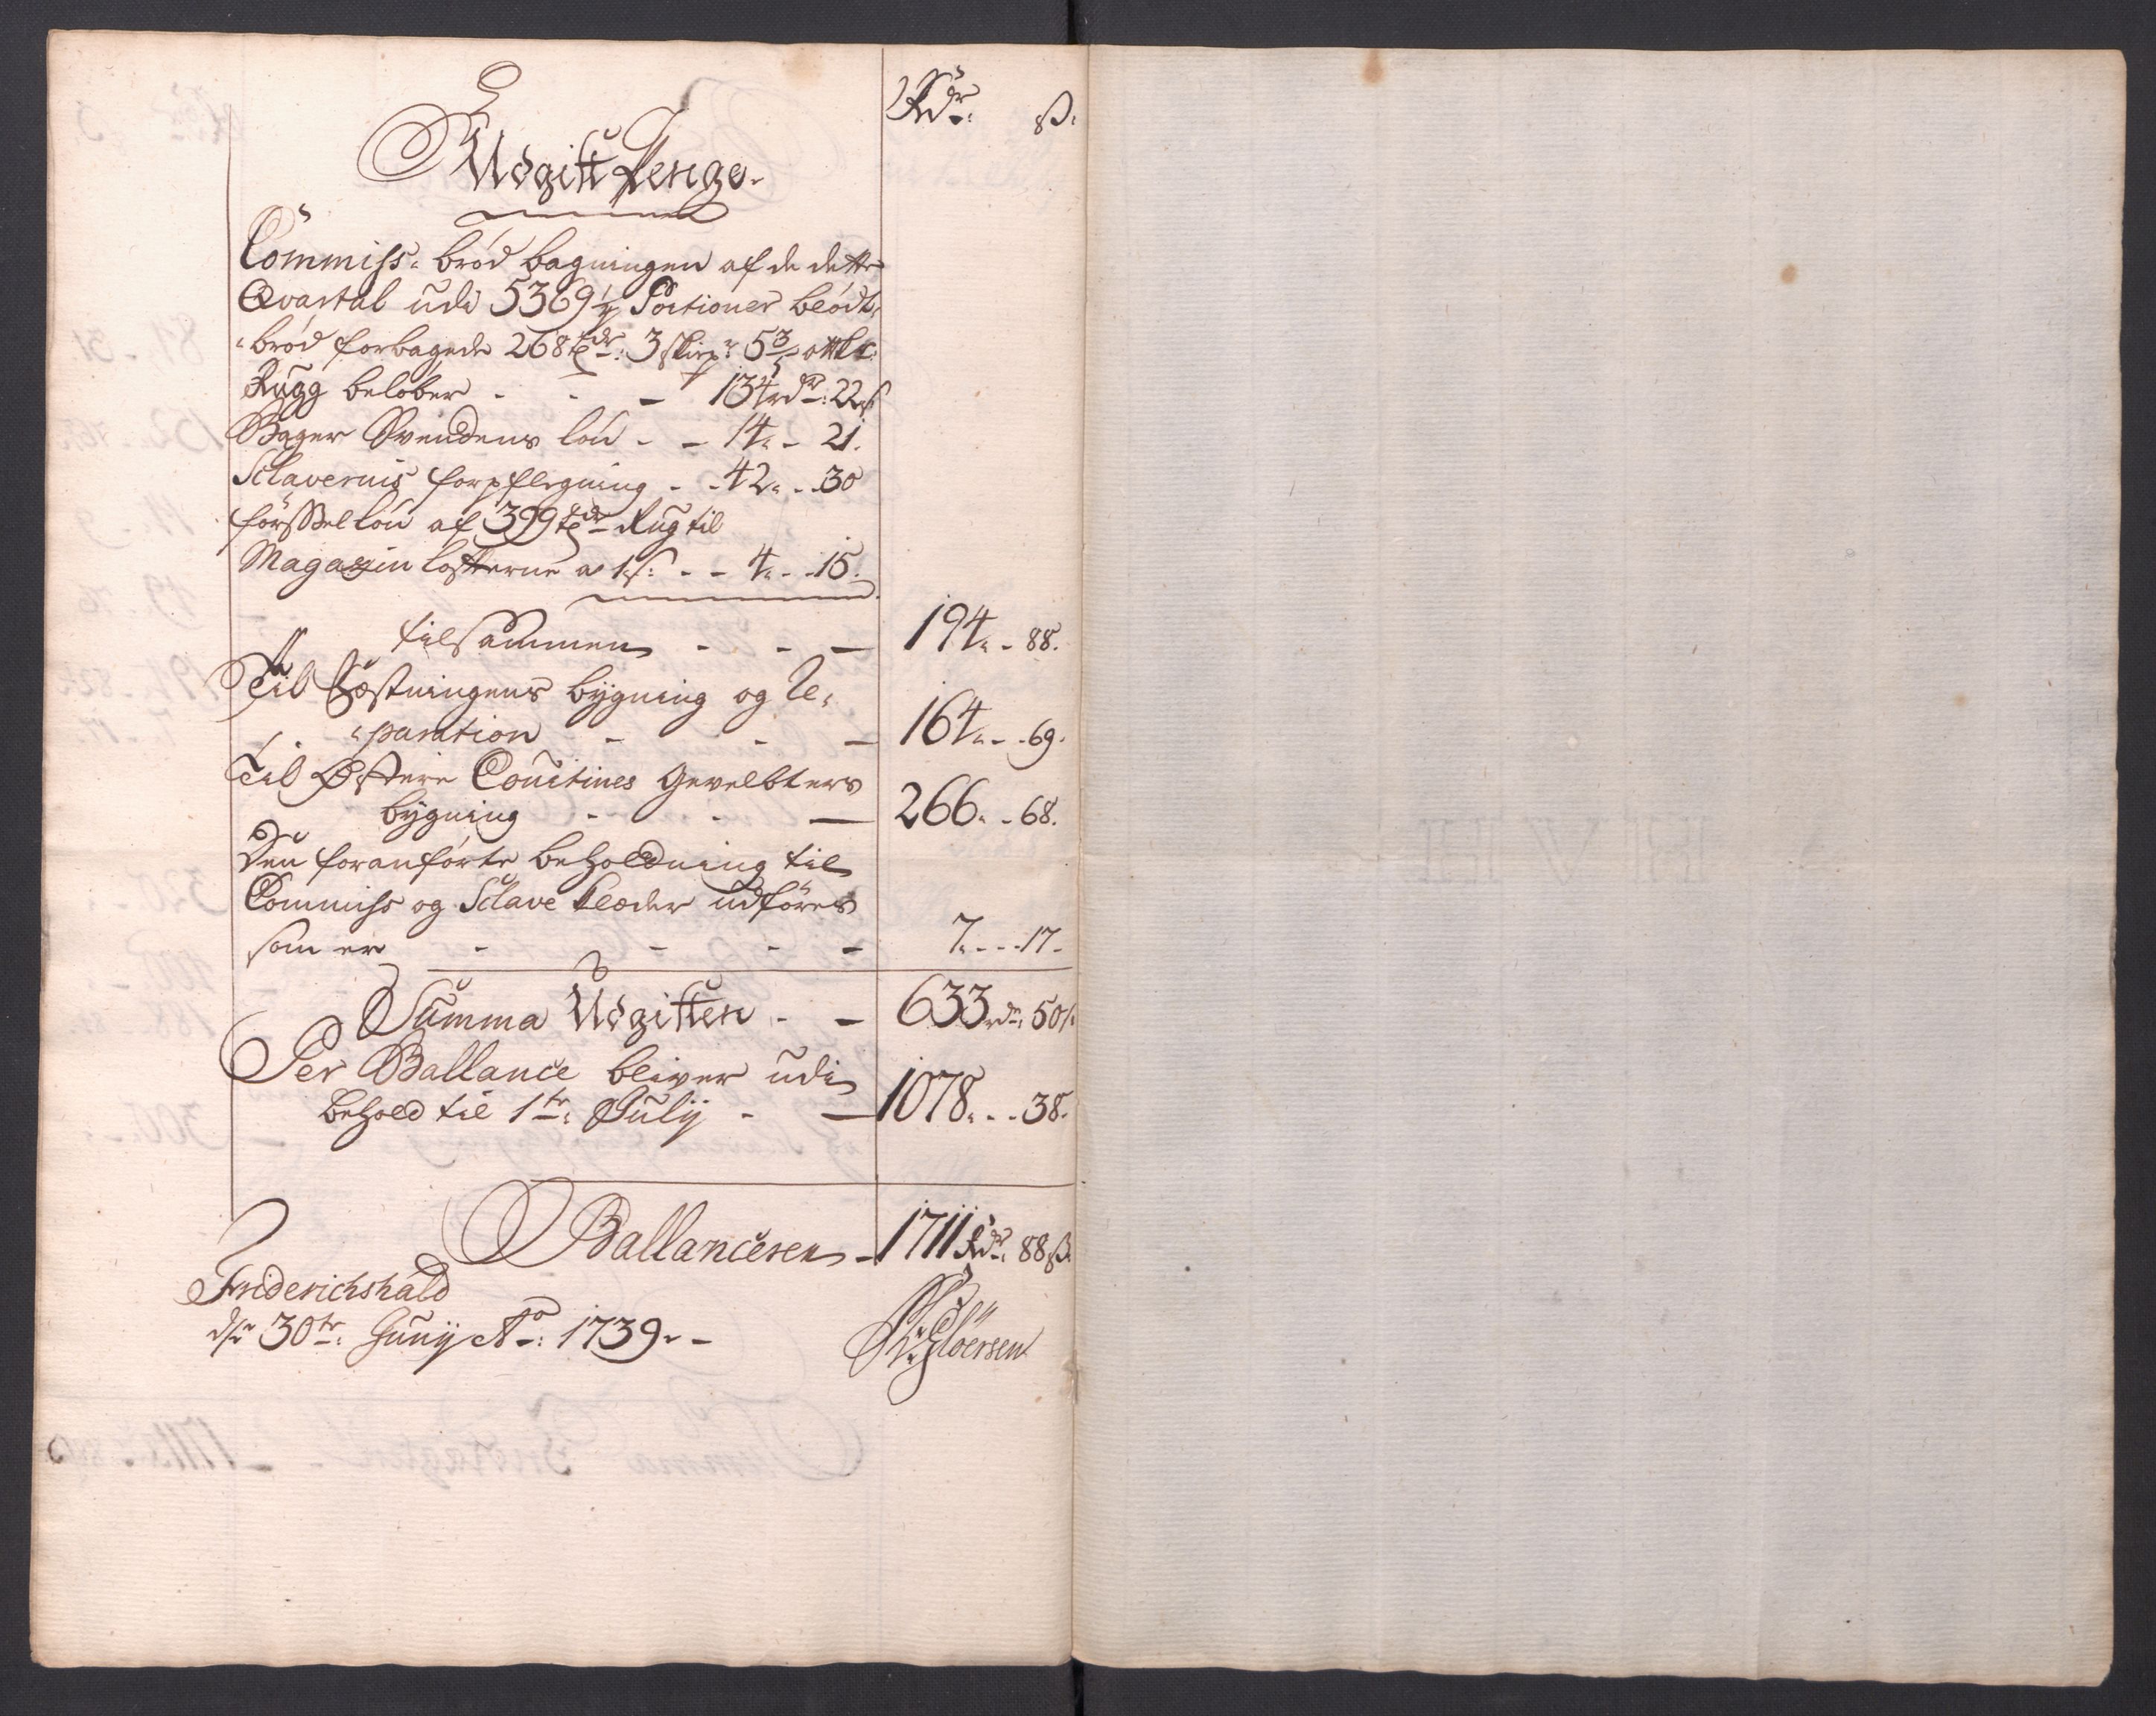 Rdr: ß:
Udgift Penge.
Commiss= brød bagningen af de dette
Qvartal udi 5369½ Portioner blødt=
=brød forbagede 268 tdr: 3 skiep: 5 3/5 ottk:
Rugg beløber - - - 134 rdr: 22 ß
Bager Svendens løn - - 14. - 21.
Sclavernis forpflegning - - 42. - 30
førssel løn af 399 tdr Rug til
Magazin lofterne a 1 ß: - - 4. - - 15.
tilsammen - - - 194. - 88.
Til Fæstningens bygning og Re=
=paration - - - 164. - - 69.
Til Østere Coutines gevelbters
bygning - - - 266. - 68.
Den foranførte beholdning til
Commiss og Sclave klæder udføres
som er - - - - 7. - - - 17.
Summa Udgiften - - 633 rdr: 50 ß
Per Ballance bliver udi
behold til 1te: Julij - - 1078. - - 38.
Ballanceren - 1711 Rdr: 88 ß.
Friderichshald
d: 30te: Junij Ao: 1739. -